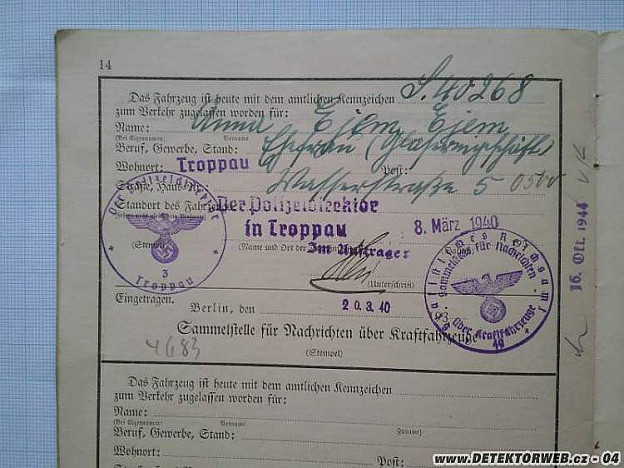 14
Das Fahrzeug ist heute mit dem amtlichen Kennzeichen S.40268
zum Verkehr zugelassen worden für:
Name: Anna Ejem Ejem
(Bei Eigennamen) Vorname
Beruf, Gewerbe, Stand: Ehefrau
Wohnort: Troppau Post:
Wasserstraße 5
Standort des Fahrzeugs
Der Polizeidirektor
in Troppau
8. März 1940
(Stempel) (Name und Ort der
Im Auftrage:
(Unterschrift)
Der Polizeidirektor
3
Troppau
Sammelstelle für Nachrichten
über Kraftfahrzeuge
49
16. Okt. 1944
Eingetragen. Berlin, den 20.3.40
Sammelstelle für Nachrichten über Kraftfahrzeuge
4683
(Stempel)
Das Fahrzeug ist heute mit dem amtlichen Kennzeichen
zum Verkehr zugelassen worden für:
Name:
(Bei Eigennamen) Vorname Zuname
Beruf, Gewerbe, Stand:
Wohnort: Post:
www.DETEKTORWEB.cz - 04